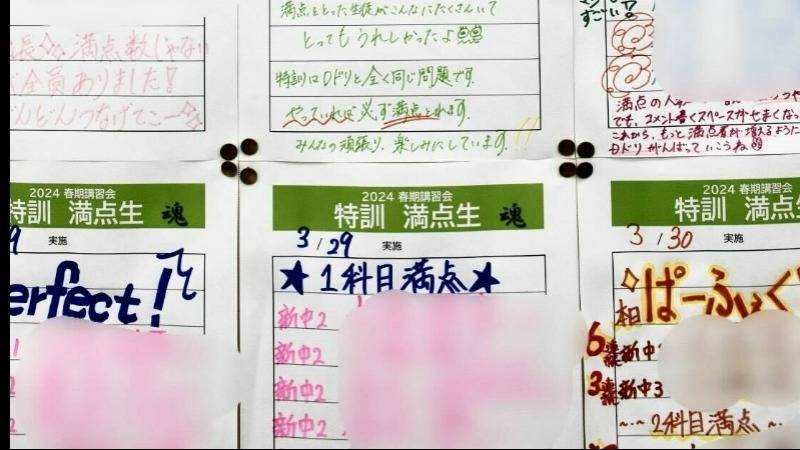 満点数じゃない
全員ありました!
どんどんつなげてこー
満点をとった生徒がこんなにたくさんいて
とってもうれしかったよ
特訓はDドリと全く同じ問題です。
やっていれば必ず満点とれます。
みんなの頑張り、楽しみにしています!!
すごい
満点の人
でも、コメント書くスペースがせまくなっ
これから、もっと満点者が増えるように
Dドリがんばっていこうね
2024 春期講習会
特訓 満点生 魂
実施
erfect!
2024 春期講習会
特訓 満点生 魂
3/29 実施
★1科目満点★
新中2
新中2
新中2
新中2
2024 春期講習会
特訓 満点生
3/30 実施
ぱーふぇく
6連続 新中
3連続 新中3
~・~2科目満点~・